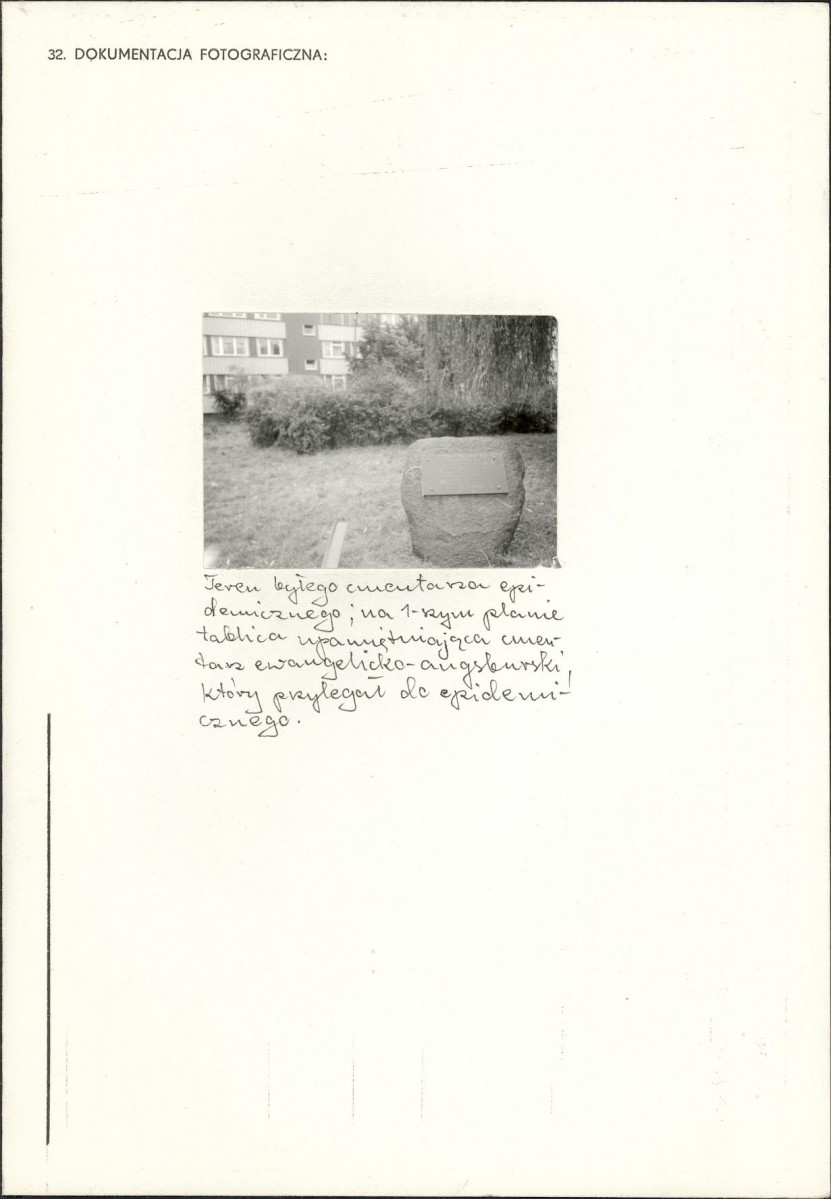 32. DOKUMENTACJA FOTOGRAFICZNA:
Teren byłego cmentarza epi-
demicznego; na 1-szym planie
tablica upamiętniająca cmen-
tarz ewangelicko-augsburski,
który przylegał do epidemi-
cznego.